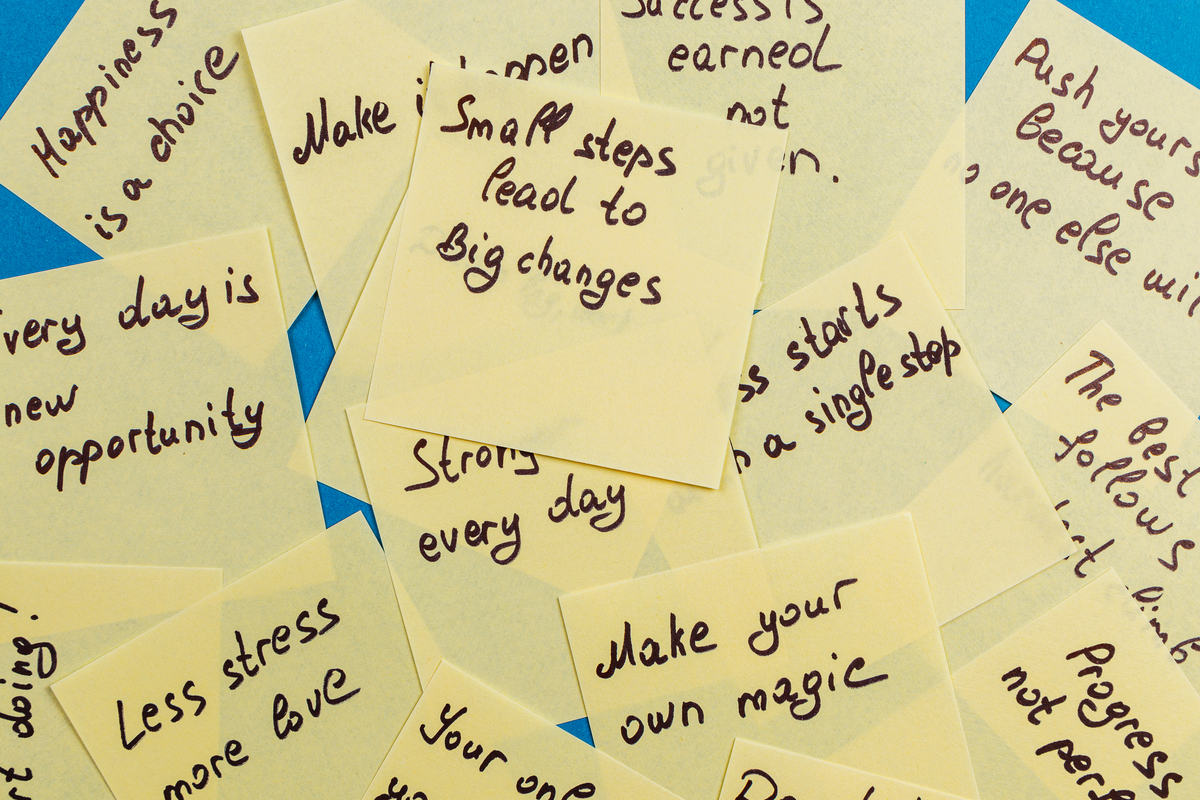 Happiness
is a choice
Make
Success is
earned
not
given.
Push yours
because
no one else wil
Small steps
lead to
Big changes
very day is
new
opportunity
ss starts
a single step
Strong
every day
The best
follows
Less stress
more love
Make your
own magic
Progress
not perf
doing!
Your one